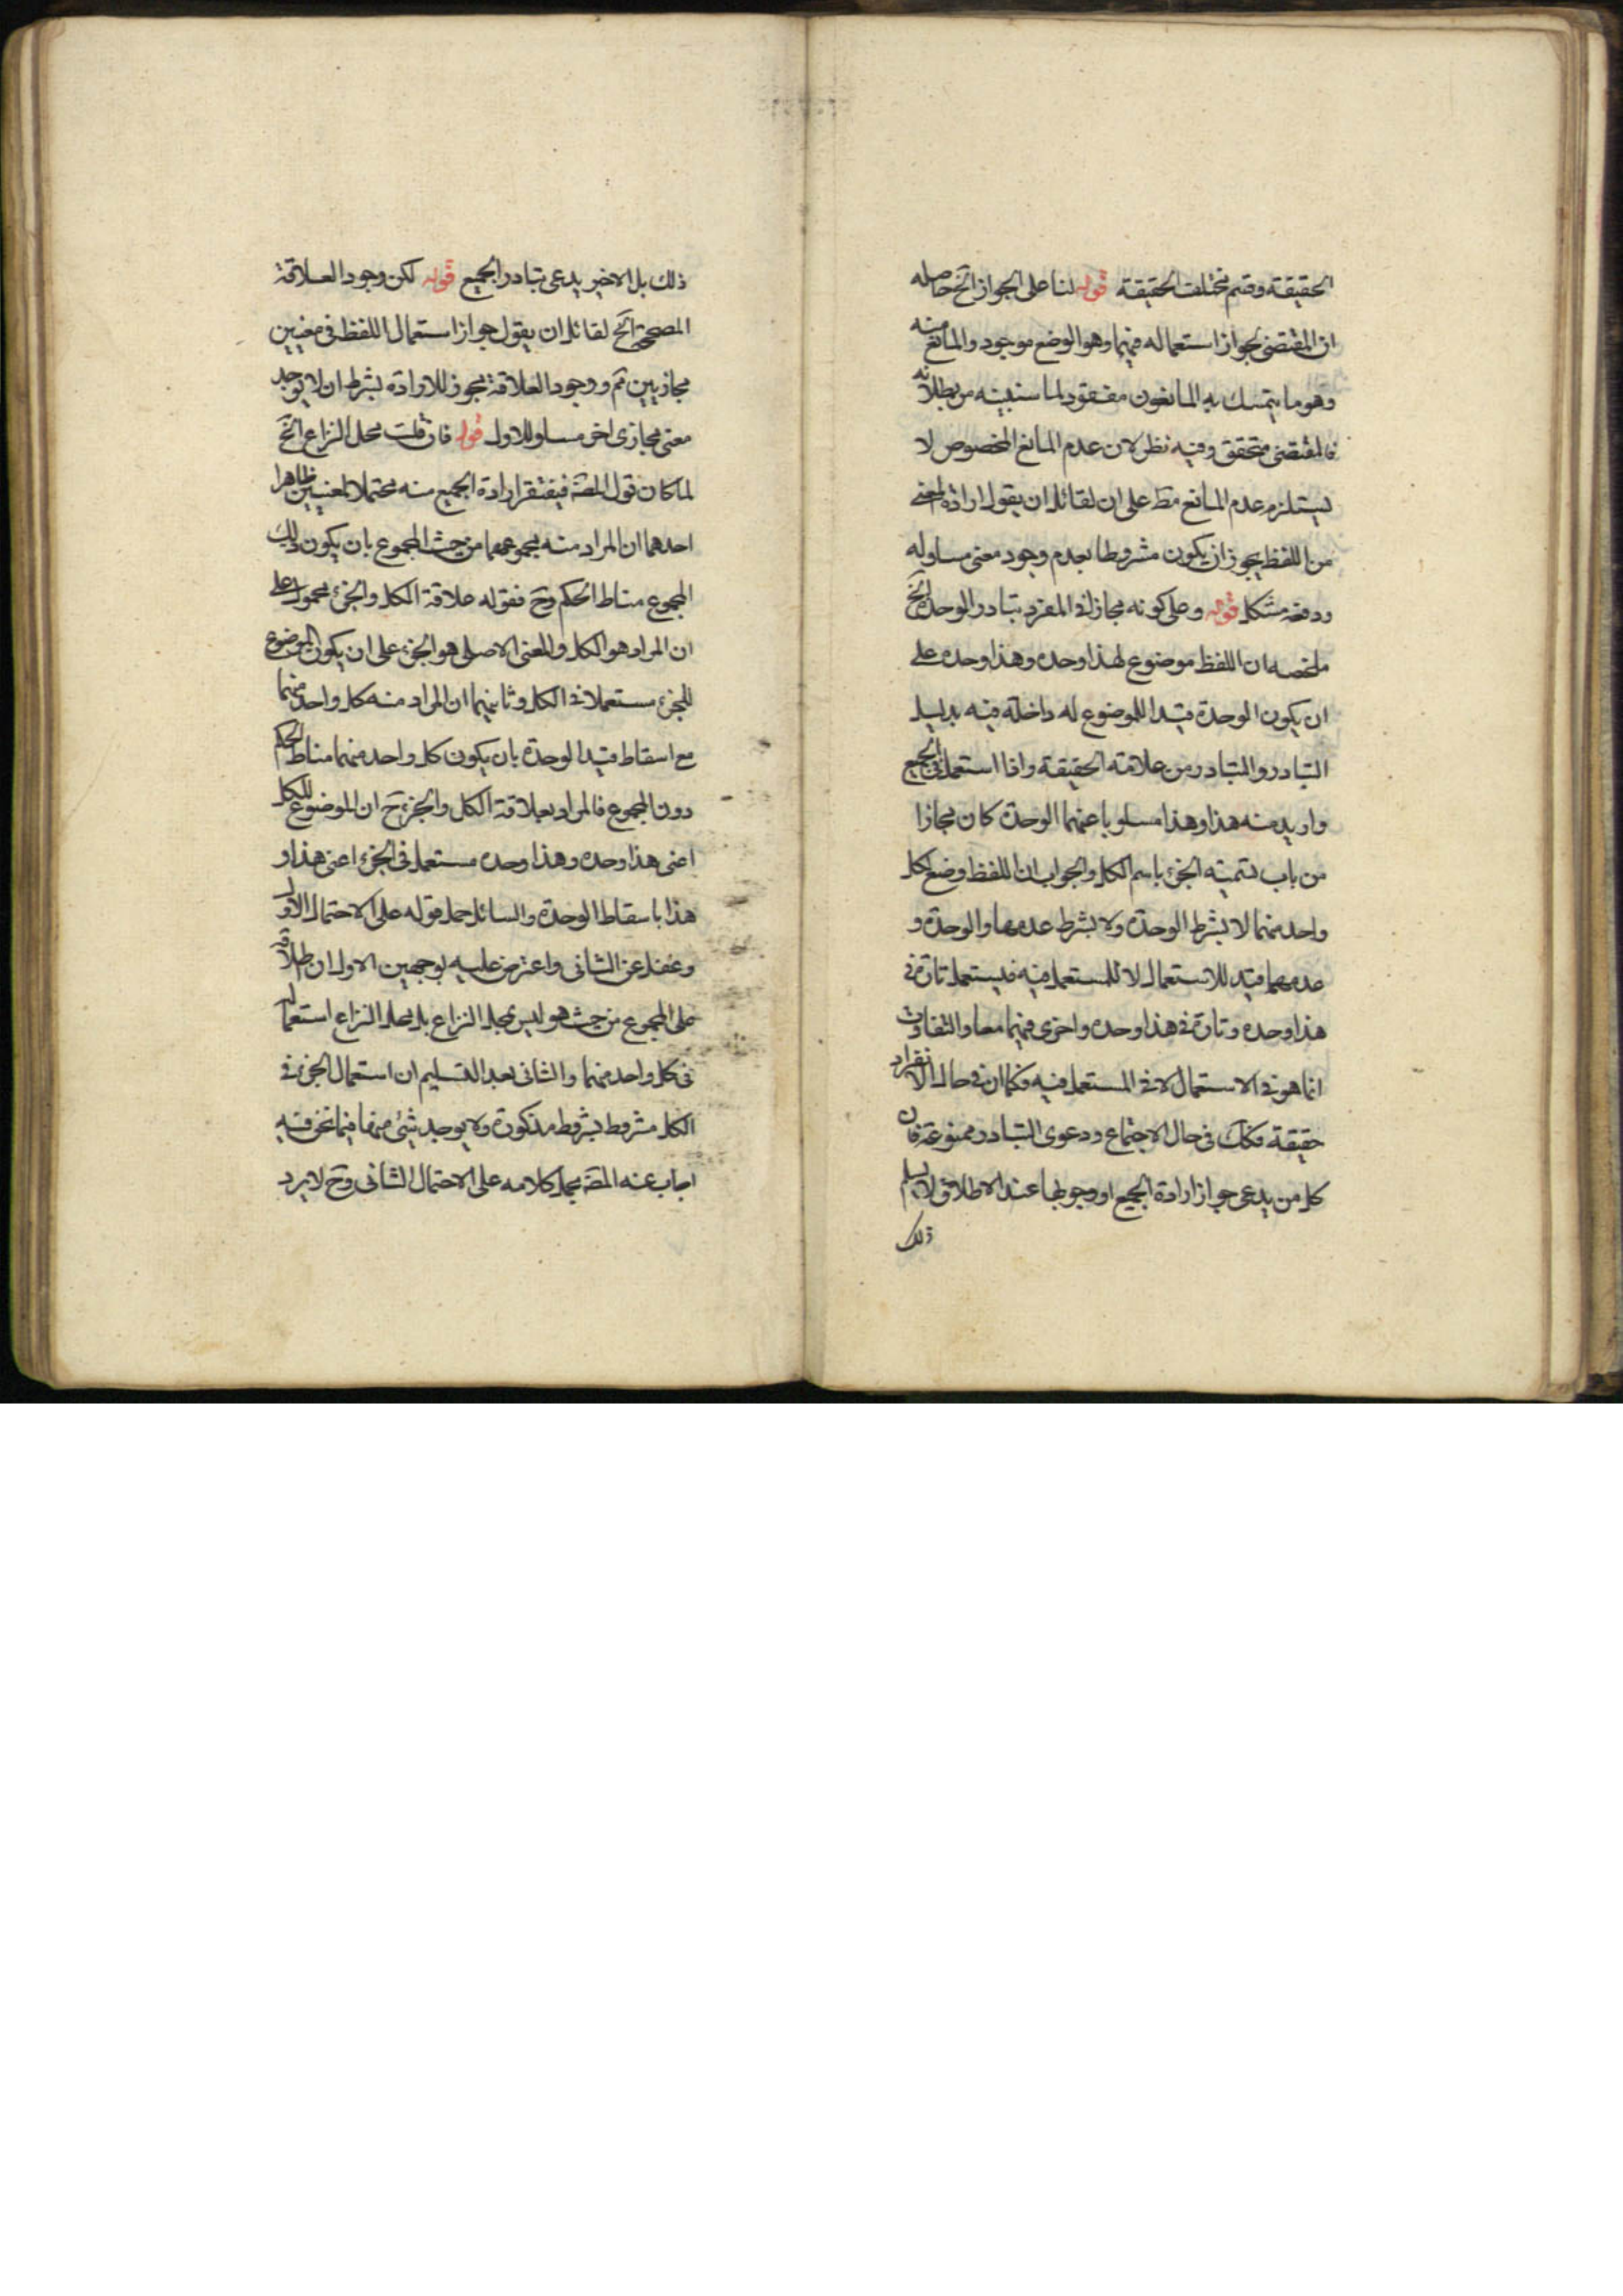 الحقيقة وقسم مختلف الحقيقة قوله لنا على الجواز الخ حاصله
ان المقتضى لجواز استعماله فيهما وهو الوضع موجود والمانع منه
وهو ما يتمسك به المانعون مفقود لما سنبينه من بطلانه
فالمقتضى متحقق وفيه نظر لان عدم المانع المخصوص لا
يستلزم عدم المانع مط على ان لقائل ان يقول ارادة المعنى
من اللفظ يجوز ان يكون مشروطا بعدم وجود معنى مساو له
ودفعه مشكل قوله وعلى كونه مجازا في المفرد تبادر الوحدة الخ
ملخصه ان اللفظ موضوع لهذا وحده وهذا وحده على
ان يكون الوحدة قيدا للموضوع له داخلة فيه بدليل
التبادر والتبادر من علامة الحقيقة واذا استعمل في الجميع
واريد منه هذا وهذا مسلوبا عنهما الوحدة كان مجازا
من باب تسمية الجزء باسم الكل والجواب ان اللفظ وضع لكل
واحد منهما لا بشرط الوحدة ولا بشرط عدمها والوحدة و
عدمها قيد للاستعمال لا للمستعمل فيه فيستعمل تارة في
هذا وحده وتارة في هذا وحده واخرى فيهما معا والتفاوت
انما هو في الاستعمال لا في المستعمل فيه فكما ان في حال الانفراد
حقيقة فكك في حال الاجتماع ودعوى التبادر ممنوعة فان
كل من يدعى جواز ارادة الجميع او وجوبها عند الاطلاق لا يسلم
ذلك
ذلك بل الاخير يدعى تبادر الجميع قوله لكن وجود العلاقة
المصححة الخ لقائل ان يقول جواز استعمال اللفظ في معنيين
مجازيين ثم ووجود العلاقة مجوز للارادة بشرط ان لا يوجد
معنى مجازى اخر مساو للاول قوله فان قلت محل النزاع الخ
لما كان قول المصة فيفتقر ارادة الجميع منه محتملا لمعنيين ظاهرا
احدهما ان المراد منه مجموعهما من حيث المجموع بان يكون ذلك
المجموع مناط الحكم وح فقوله علاقة الكل والجزء محمول على
ان المراد هو الكل والمعنى الاصلى هو الجزء على ان يكون الموضوع
للجزء مستعملا في الكل وثانيهما ان المراد منه كل واحد منهما
مع اسقاط قيد الوحدة بان يكون كل واحد منهما مناط الحكم
دون المجموع فالمراد بعلاقة الكل والجزء ح ان الموضوع للكل
اعنى هذا وحده وهذا وحده مستعمل في الجزء اعنى هذا و
هذا باسقاط الوحدة والسائل حمل قوله على الاحتمال الاول
وغفل عن الثانى واعترض عليه بوجهين الاول ان اطلاقه
على المجموع من حيث هو ليس محل النزاع بل محل النزاع استعماله
في كل واحد منهما والثانى بعد التسليم ان استعمال الجزء في
الكل مشروط بشروط مذكورة ولا يوجد شئ منها فيما نحن فيه
اجاب عنه المصة بحمل كلامه على الاحتمال الثانى وح لا يرد